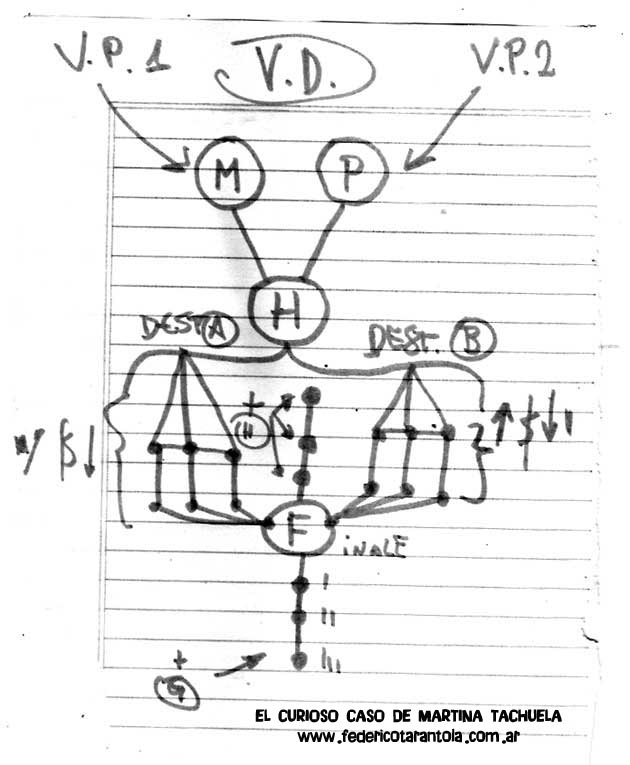 V.P.1
V.D.
V.P.2
M
P
H
DEST. A
DEST. B
+
H
F
iNALE
I
II
III
+
G
EL CURIOSO CASO DE MARTINA TACHUELA
www.federicotarantola.com.ar